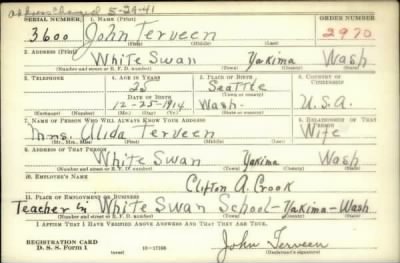 Address Changed 5-29-41
SERIAL NUMBER 1. NAME (Print) ORDER NUMBER
3600 John Terveen 2970
(First) (Middle) (Last)
2. ADDRESS (Print)
White Swan Yakima Wash
(Number and street or R. F. D. number) (Town) (County) (State)
3. TELEPHONE 4. AGE IN YEARS 5. PLACE OF BIRTH 6. COUNTRY OF CITIZENSHIP
25 Seattle
DATE OF BIRTH (Town or county)
12-25-1914 Wash. U.S.A.
(Exchange) (Number) (Mo.) (Day) (Yr.) (State or country)
7. NAME OF PERSON WHO WILL ALWAYS KNOW YOUR ADDRESS 8. RELATIONSHIP OF THAT PERSON
Mrs. Alida Terveen Wife
(Mr., Mrs., Miss) (First) (Middle) (Last)
9. ADDRESS OF THAT PERSON
White Swan Yakima Wash
(Number and street or R. F. D. number) (Town) (County) (State)
10. EMPLOYER'S NAME
Clifton A. Crook
11. PLACE OF EMPLOYMENT OR BUSINESS
Teacher in White Swan School-Yakima-Wash
(Number and street or R. F. D. number) (Town) (County) (State)
I AFFIRM THAT I HAVE VERIFIED ABOVE ANSWERS AND THAT THEY ARE TRUE.
REGISTRATION CARD
D. S. S. Form 1 (over) 16-17105 John Terveen
(Registrant's signature)